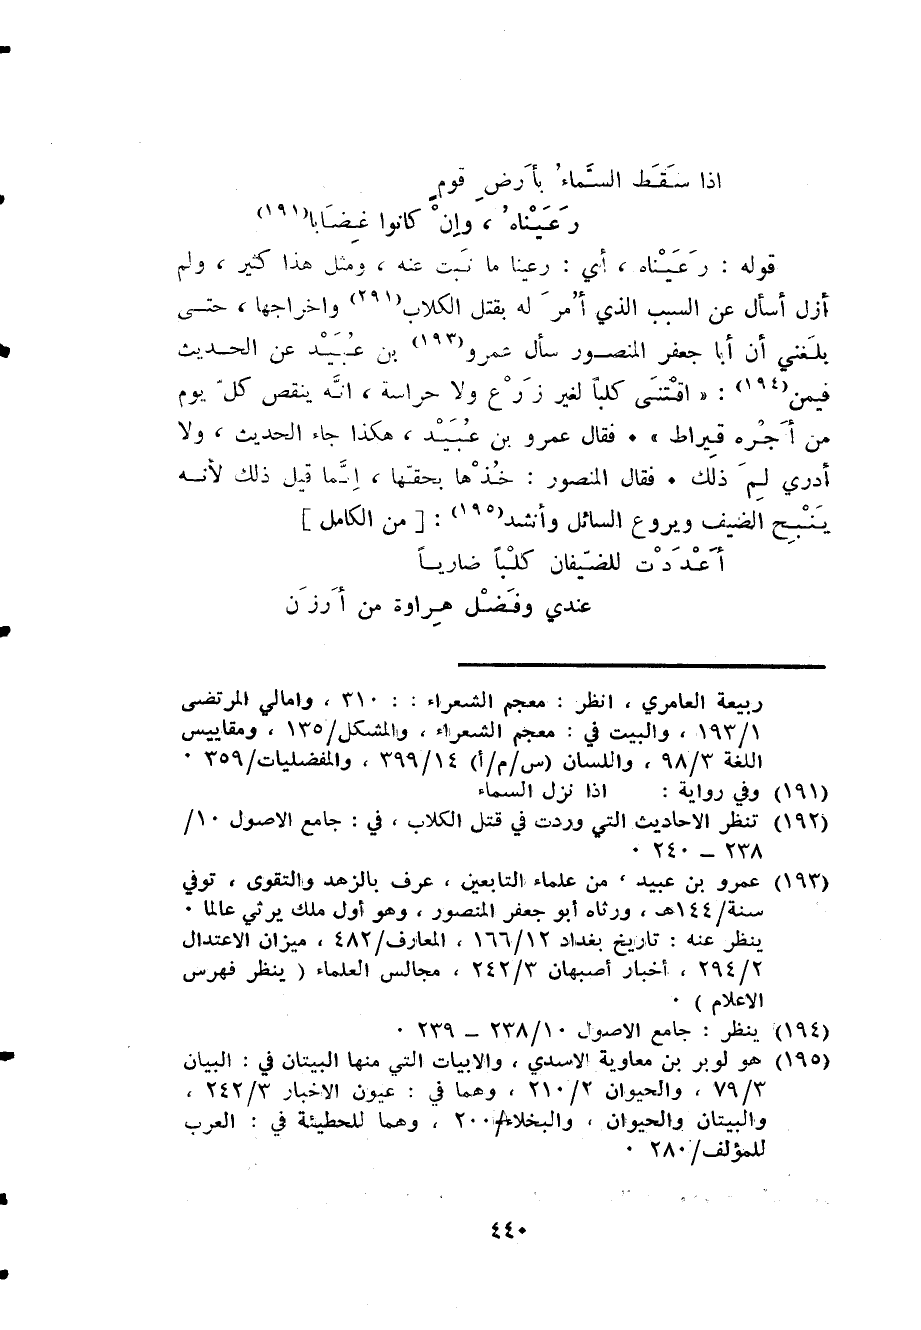 اذا سَقَط السَّماءُ بأَرضِ قومٍ
رَعَيْناهُ ، وإنْ كانوا غِضَابا(١٩١)
قوله : رَعَيْناه ، أي : رعينا ما نَبَت عنه ، ومثل هذا كثير ، ولم
أزل أسأل عن السبب الذي أُمرَ له بقتل الكلاب(٢٩١) واخراجها ، حتى
بلَغني أن أبا جعفر المنصور سأل عمرو(١٩٣) بن عُبَيْد عن الحديث
فيمن(١٩٤) : « اقْتَنَى كلباً لغير زَرْع ولا حراسة ، انه ينقص كلّ يوم
من أَجْرُه قِيراط » ٠ فقال عمرو بن عُبَيْد ، هكذا جاء الحديث ، ولا
أدري لِمَ ذلك ٠ فقال المنصور : خُذْها بحقّها ، إنَّما قيل ذلك لأنه
يَنْبِح الضيف ويروع السائل وأنشد(١٩٥) : [ من الكامل ]
أَعْدَدْت للضّيفان كلْباً ضارياً
عندي وفَضْل هِراوة من أَرزَن
ربيعة العامري ، انظر : معجم الشعراء : : ٣١٠ ، وامالي المرتضى
١٩٣/١ ، والبيت في : معجم الشعراء ، والمشكل/١٣٥ ، ومقاييس
اللغة ٩٨/٣ ، واللسان (س/م/أ) ٣٩٩/١٤ ، والمفضليات/٣٥٩ ٠
(١٩١) وفي رواية : اذا نزل السماء
(١٩٢) تنظر الاحاديث التي وردت في قتل الكلاب ، في : جامع الاصول ١٠/
٢٣٨ – ٢٤٠ ٠
(١٩٣) عمرو بن عبيد ، من علماء التابعين ، عرف بالزهد والتقوى ، توفي
سنة/١٤٤هـ ، ورثاه أبو جعفر المنصور ، وهو أول ملك يرثي عالما ٠
ينظر عنه : تاريخ بغداد ١٦٦/١٢ ، المعارف/٤٨٢ ، ميزان الاعتدال
٢٩٤/٢ ، أخبار أصبهان ٢٤٢/٣ ، مجالس العلماء ( ينظر فهرس
الاعلام ) ٠
(١٩٤) ينظر : جامع الاصول ٢٣٨/١٠ – ٢٣٩ ٠
(١٩٥) هو لوبر بن معاوية الاسدي ، والابيات التي منها البيتان في : البيان
٧٩/٣ ، والحيوان ٢١٠/٢ ، وهما في : عيون الاخبار ٢٤٢/٣ ،
والبيتان والحيوان ، والبخلاء/٢٠٠ ، وهما للحطيئة في : العرب
للمؤلف/٢٨٠ ٠
٤٤٠